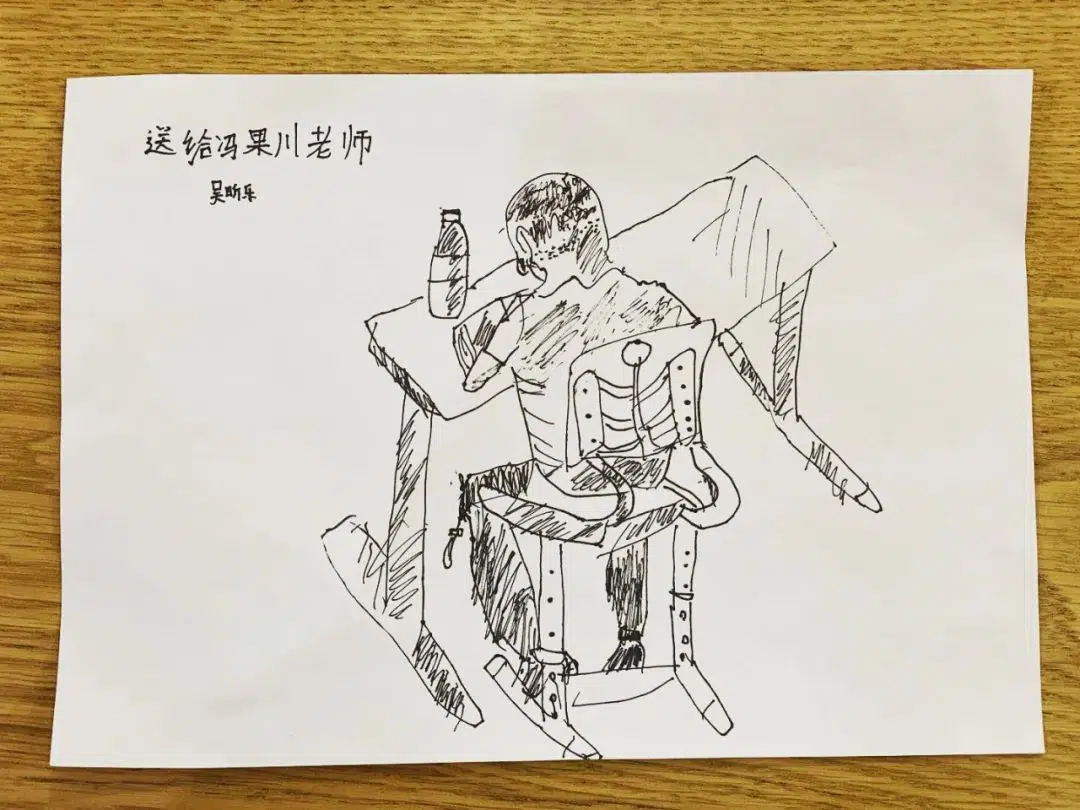 送给冯果川老师
吴昕乐